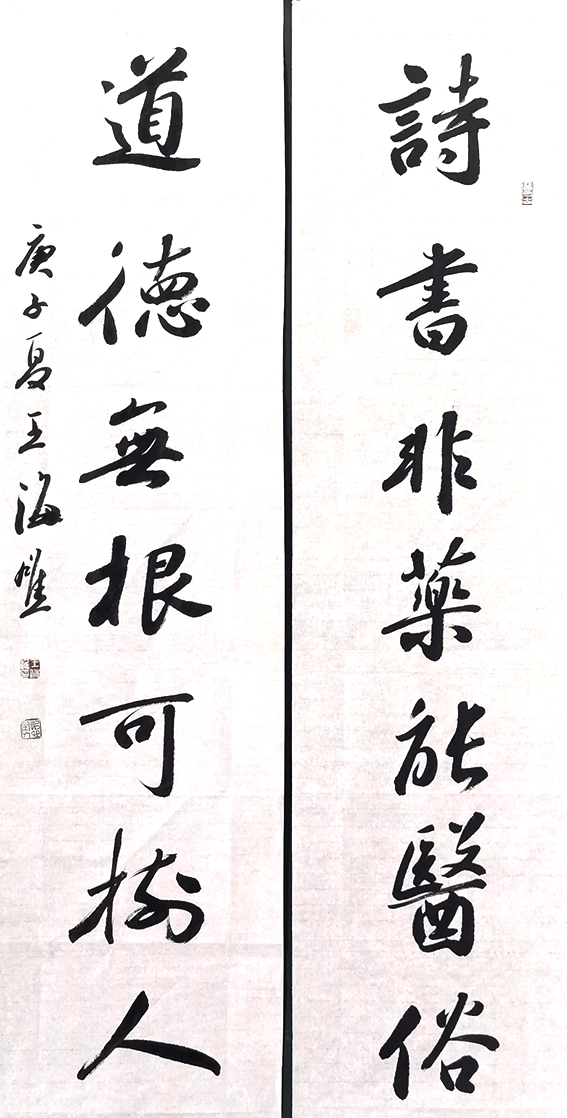 詩書非藥能醫俗
道德無根可樹人
庚子夏王海